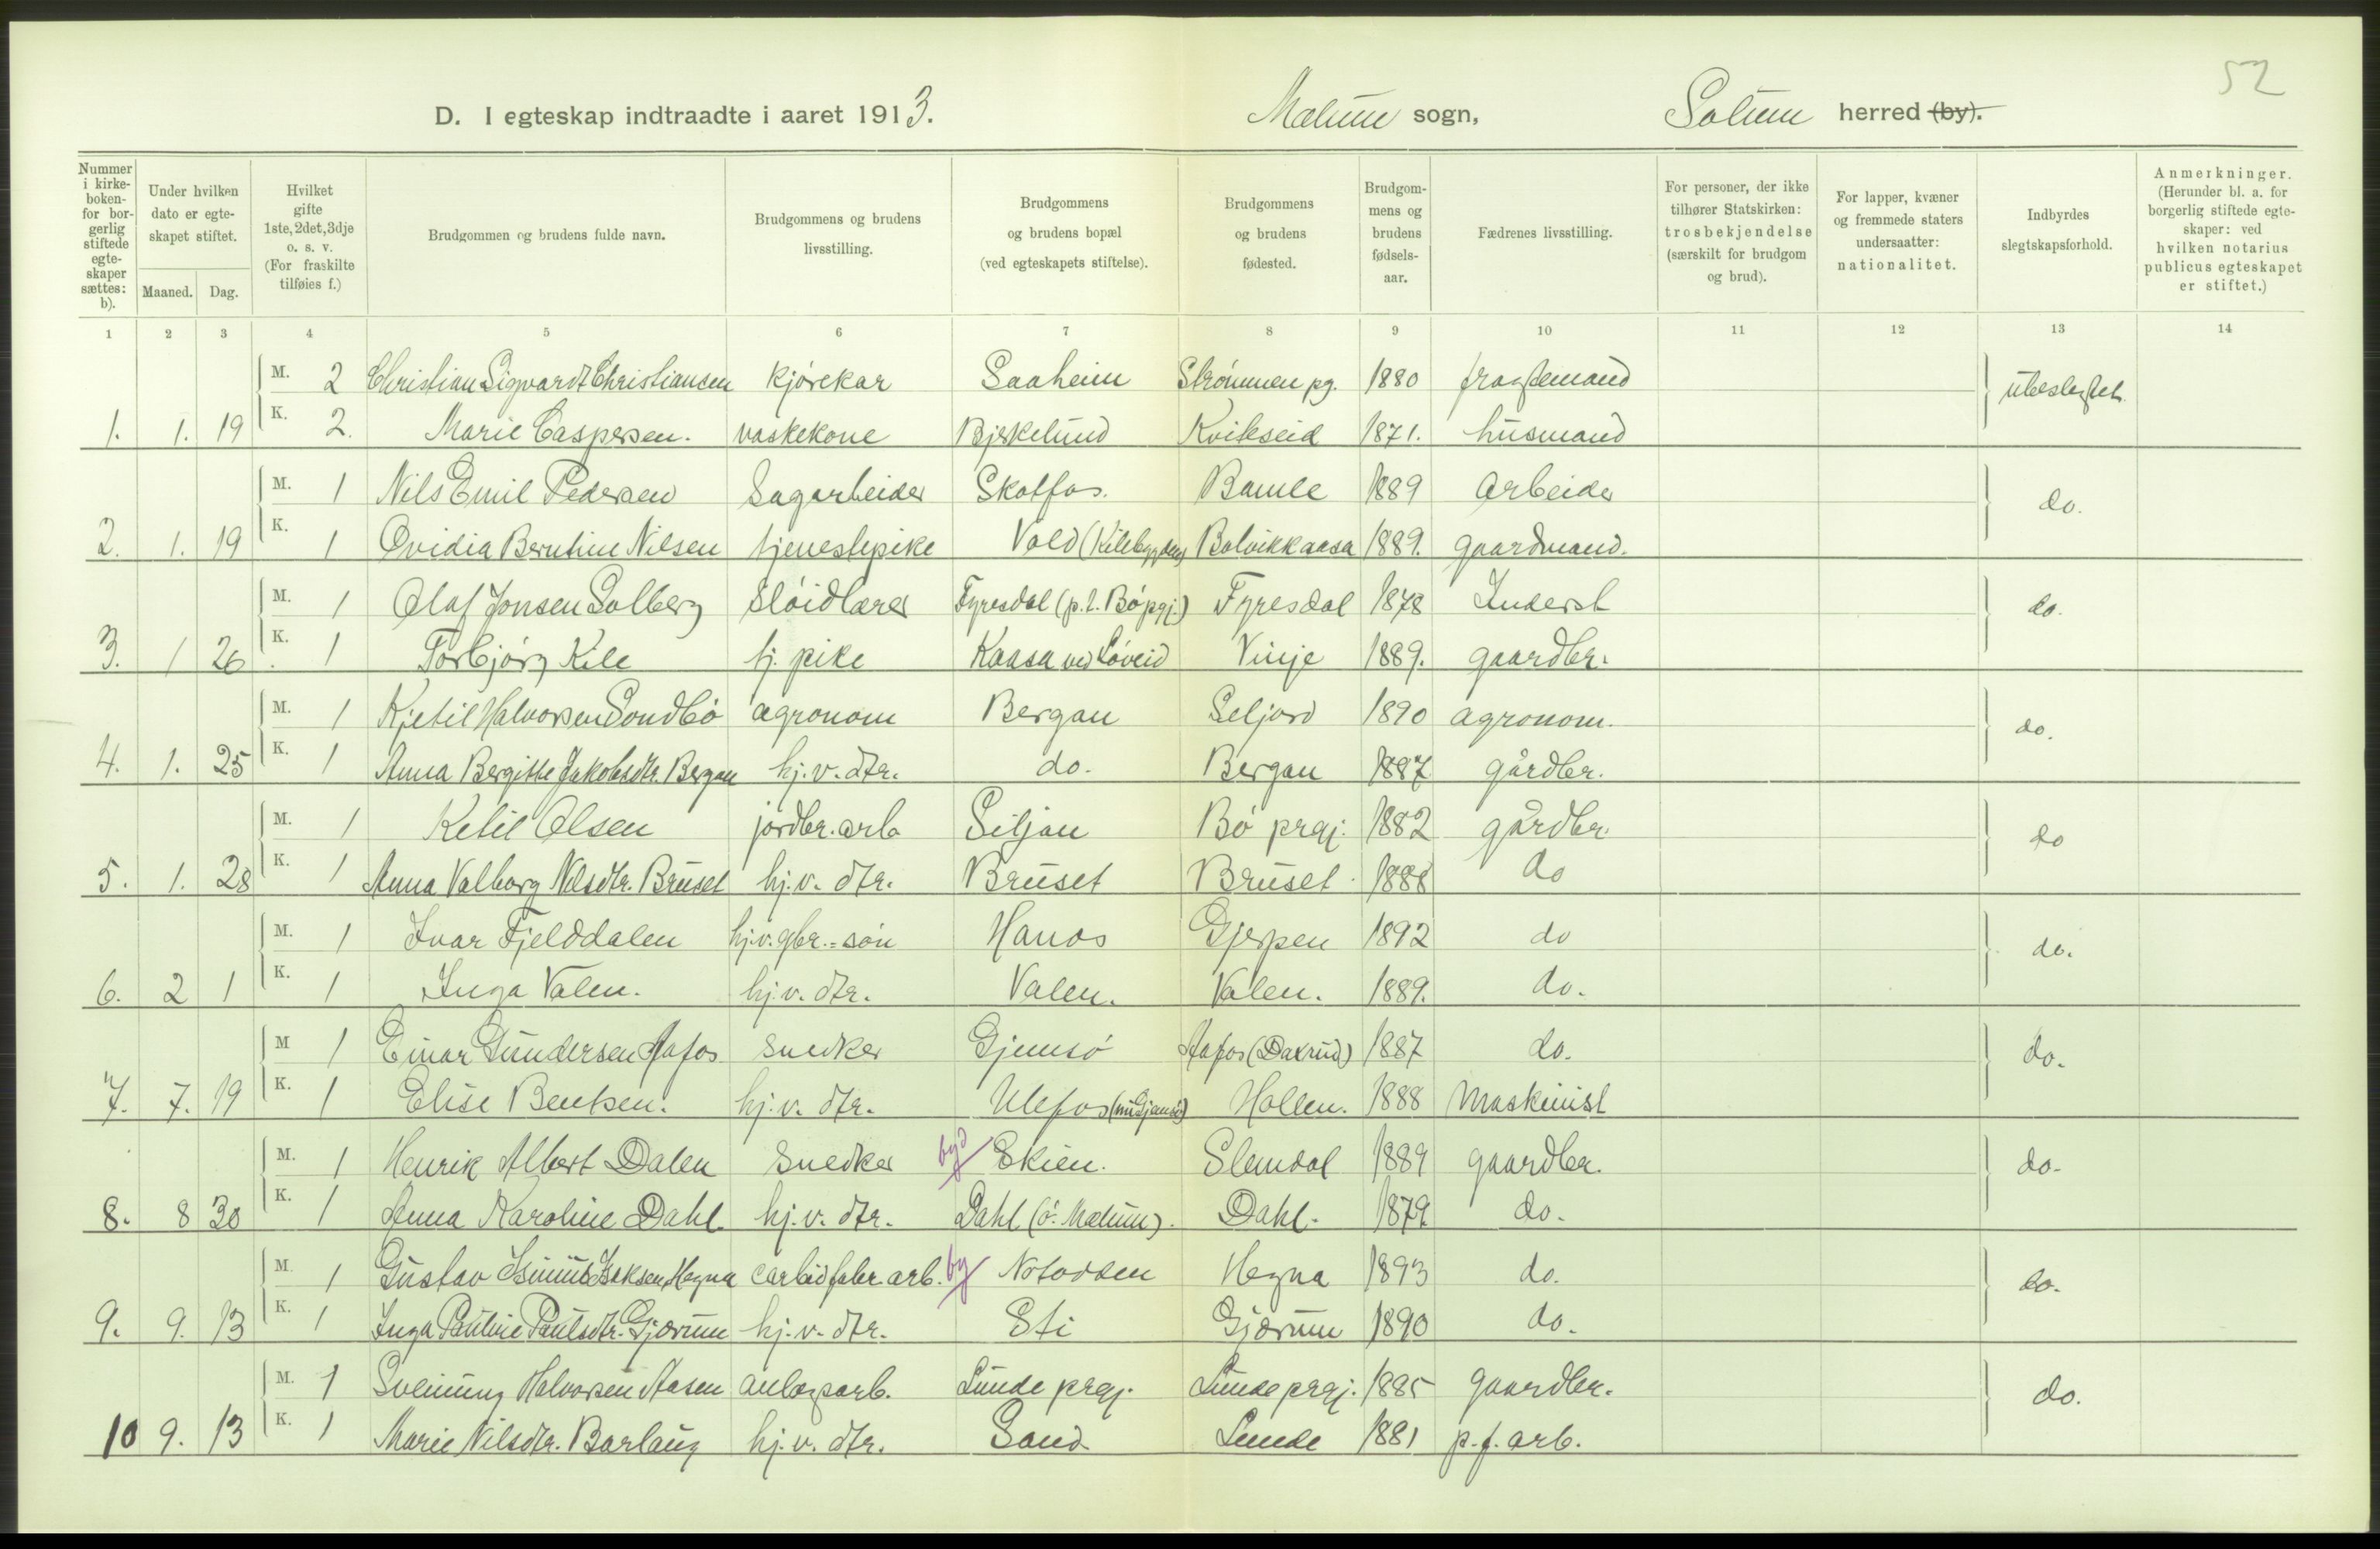 52
D. I egteskap indtraadte i aaret 1913. Mælum sogn, Solum herred (by).
Nummer i kirke-boken- for bor-gerlig stiftede egte-skaper sættes: b).
Under hvilken dato er egte-skapet stiftet.
Maaned. Dag.
Hvilket gifte 1ste, 2det, 3dje o. s. v. (For fraskilte tilføies f.)
Brudgommen og brudens fulde navn.
Brudgommens og brudens livsstilling.
Brudgommens og brudens bopæl (ved egteskapets stiftelse).
Brudgommens og brudens fødested.
Brudgom-mens og brudens fødsels-aar.
Fædrenes livsstilling.
For personer, der ikke tilhører Statskirken: trosbekjendelse (særskilt for brudgom og brud).
For lapper, kvæner og fremmede staters undersaatter: nationalitet.
Indbyrdes slegtskapsforhold.
Anmerkninger. (Herunder bl. a. for borgerlig stiftede egte-skaper: ved hvilken notarius publicus egteskapet er stiftet.)
1 2 3 4 5 6 7 8 9 10 11 12 13 14
M. 2 Christian Sigvardt Christiansen kjørekar Saaheim Strømmen pg. 1880 fragtemand ubeslegtet
1. 1. 19 K. 2. Marie Caspersen. vaskekone Bjerkelund Kviteseid 1871. husmand
M. 1 Nils Emil Pedersen Sagarbeider Skotfos. Bamle 1889 Arbeider do.
2. 1. 19 K. 1 Ovidia Berntine Nilsen tjenestepike Vold (Kilebygden) Bolvikkaasa 1889. gaardmand.
M. 1 Olaf Jonsen Solberg Sløidlærer Fyresdal (p.t. Bø pgj.) Fyresdal 1878 Inderst do.
3. 1 26 K. 1 Torbjørg Kile tj. pike Kaasa ved Løveid Vinje 1889. gaardbr.
M. 1 Kjetil Halvorsen Sondbø agronom Bergan Seljord 1890 agronom. do.
4. 1. 25 K. 1 Anna Bergitte Jakobsdtr. Bergan hj. v. dtr. do. Bergan 1887 gårdbr.
M. 1 Ketil Olsen jordbr. arb Siljan Bø prgj. 1882 gårdbr. do
5. 1. 28 K. 1 Anna Valborg Nilsdtr. Bruset hj. v. dtr. Bruset Bruset 1888 do
M. 1 Ivar Fjelddalen hj. v. gbr.=søn Hanos Gjerpen 1892 do do.
6. 2 1 K. 1 Inga Valen. hj. v. dtr. Valen. Valen. 1889. do.
M 1 Einar Gundersen Aafos. snedker Gjemsø Aafos (Daxrud) 1887 do. do.
7. 7. 19 K. 1 Elise Bentsen. hj. v. dtr. Ulefos (nu Gjemsø) Hollen. 1888 Maskinist
M. 1 Henrik Albert Dalen Snedker byd Skien. Slemdal 1889 gaardbr. do.
8. 8 30 K. 1 Anna Karoline Dahl hj. v. dtr. Dahl (ø. Mælum). Dahl. 1879 do.
M. 1 Gustav Isaksen Hegna carbidfabr. arb. by Notodden Hegna 1893 do. do.
9. 9. 13 K. 1 Inga Pauline Paulsdtr. Gjærum hj. v. dtr. Sti Gjærum 1890 do.
M. 1 Sveinung Halvorsen Aasen anlægsarb. Lunde prgj. Lunde prgj. 1885 gaardbr. do.
10 9. 13 K. 1 Marie Nilsdtr. Barlaug hj. v. dtr. Sand Lunde 1881 p. f. arb.